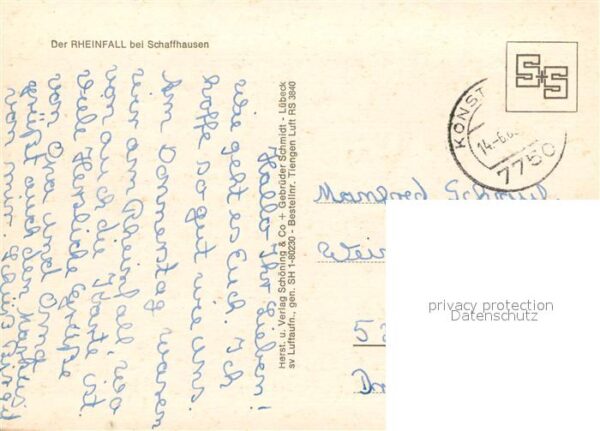 Der RHEINFALL bei Schaffhausen
Hallo Ihr Lieben!
wie geht es Euch. Ich
hoffe so gut wie uns.
Am Donnerstag waren
wir am Rheinfall, wo
von auch die Karte ist.
Viele Herzliche Grüße
von Oma und Oma
grüßt auch den
von mir.
Herst. u. Verlag Schöning & Co + Gebrüder Schmidt - Lübeck
sv Luftaufn., gen. SH 1-80230 - Bestellnr. Tiengen Luft RS 3840
S+S
KONST
14-6.
7750
Manfred
Wei
5
privacy protection
Datenschutz